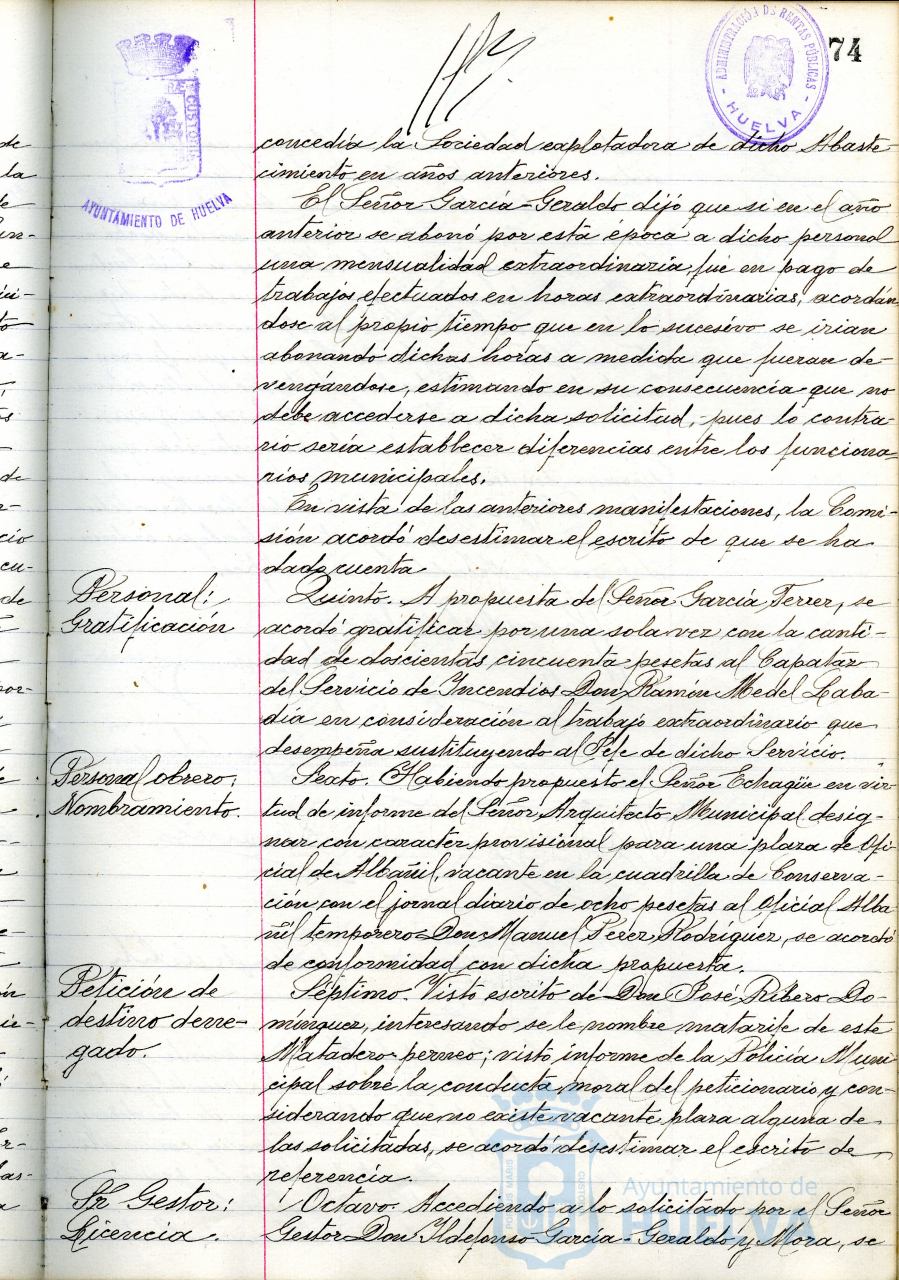 74
ADMINISTRACIÓN DE RENTAS PÚBLICAS
- HUELVA -
AYUNTAMIENTO DE HUELVA
concedía la Sociedad explotadora de dicho Abaste-
cimiento en años anteriores.
El Señor García-Geraldo dijo que si en el año
anterior se abonó por esta época a dicho personal
una mensualidad extraordinaria fué en pago de
trabajos efectuados en horas extraordinarias, acordán-
dose al propio tiempo que en lo sucesivo se irian
abonando dichas horas a medida que fueran de-
vengándose, estimando en su consecuencia que no
debe accederse a dicha solicitud, pues lo contra-
rio sería establecer diferencias entre los funciona-
rios municipales.
En vista de las anteriores manifestaciones, la Comi-
sión acordó desestimar el escrito de que se ha
dado cuenta
Personal:
Gratificación
Quinto. A propuesta del Señor García Ferrer, se
acordó gratificar por una sola vez con la canti-
dad de doscientas cincuenta pesetas al Capataz
del Servicio de Incendios Don Ramón Medel Laba-
día en consideración al trabajo extraordinario que
desempeña sustituyendo al Jefe de dicho Servicio.
Personal obrero:
Nombramiento.
Sexto. Habiendo propuesto el Señor Echagüe en vir-
tud de informe del Señor Arquitecto Municipal desig-
nar con caracter provisional para una plaza de Ofi-
cial de Albañil, vacante en la cuadrilla de Conserva-
ción con el jornal diario de ocho pesetas al Oficial Alba-
ñil temporero Don Manuel Perez Rodriguez, se acordó
de conformidad con dicha propuesta.
Petición de
destino dene-
gado.
Séptimo. Visto escrito de Don José Ribero Do-
mínguez, interesando se le nombre matarife de este
Matadero perneo; visto informe de la Policía Muni-
cipal sobre la conducta moral del peticionario y con-
siderando que no existe vacante plaza alguna de
las solicitadas, se acordó desestimar el escrito de
referencia.
Sr. Gestor:
Licencia.
Octavo. Accediendo a lo solicitado por el Señor
Gestor Don Ildefonso García-Geraldo y Mora, se
Ayuntamiento de
HUELVA